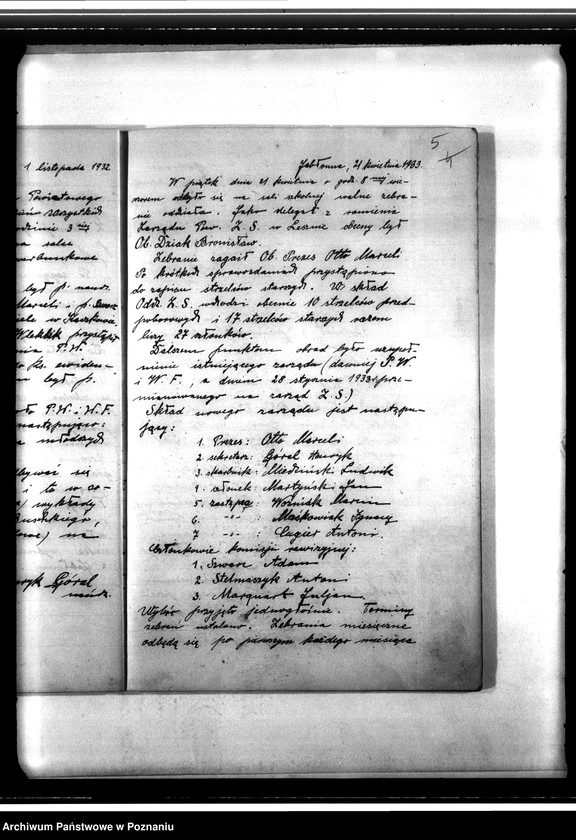 1 listopada 1932
Powiatowego
3
na salce
był p. naucz.
Marceli i p. Szwarc
P.W.
był p.
P.W. i W.F.
następująco:
młodszych
się
i to w co-
wykłady
na
Górel
5
4
Jabłonna, 21 kwietnia 1933.
W piątek dnia 21 kwietnia o godz. 8 mej wie-
czorem odbyło się na sali szkolnej walne zebra-
nie oddziału. Jako delegat z ramienia
Zarządu Pow. Z. S. w Lesznie obecny był
Ob. Dziak Bronisław.
Zebranie zagaił Ob. Prezes Otto Marceli
Po krótkich sprawozdaniach przystąpiono
do zapisu strzelców starszych. W skład
Oddz. Z. S. wchodzi obecnie 10 strzelców przed-
poborowych i 17 strzelców starszych razem
liczy 27 członków.
Dalszem punktem obrad było uzupeł-
nienie istniejącego zarządu (dawniej P. W.
i W. F., a dniem 28 stycznia 1933 r. prze-
mianowanego na zarząd Z. S.)
Skład nowego zarządu jest następu-
jący:
1. Prezes: Otto Marceli
2. sekretarz: Górel Henryk
3. skarbnik: Miedziński Ludwik
4. członek: Martyński Jan
5. zastępca: Woźniak Marcin
6. -"- : Maćkowiak Ignacy
7 -"- : Cugier Antoni.
Członkowie komisji rewizyjnej:
1. Szwarc Adam
2. Stelmaszyk Antoni
3. Marquart Juljan.
Wybór przyjęto jednogłośnie. Terminy
zebrań ustalono. Zebrania miesięczne
odbędą się po pierwszym każdego miesiąca
Archiwum Państwowe w Poznaniu